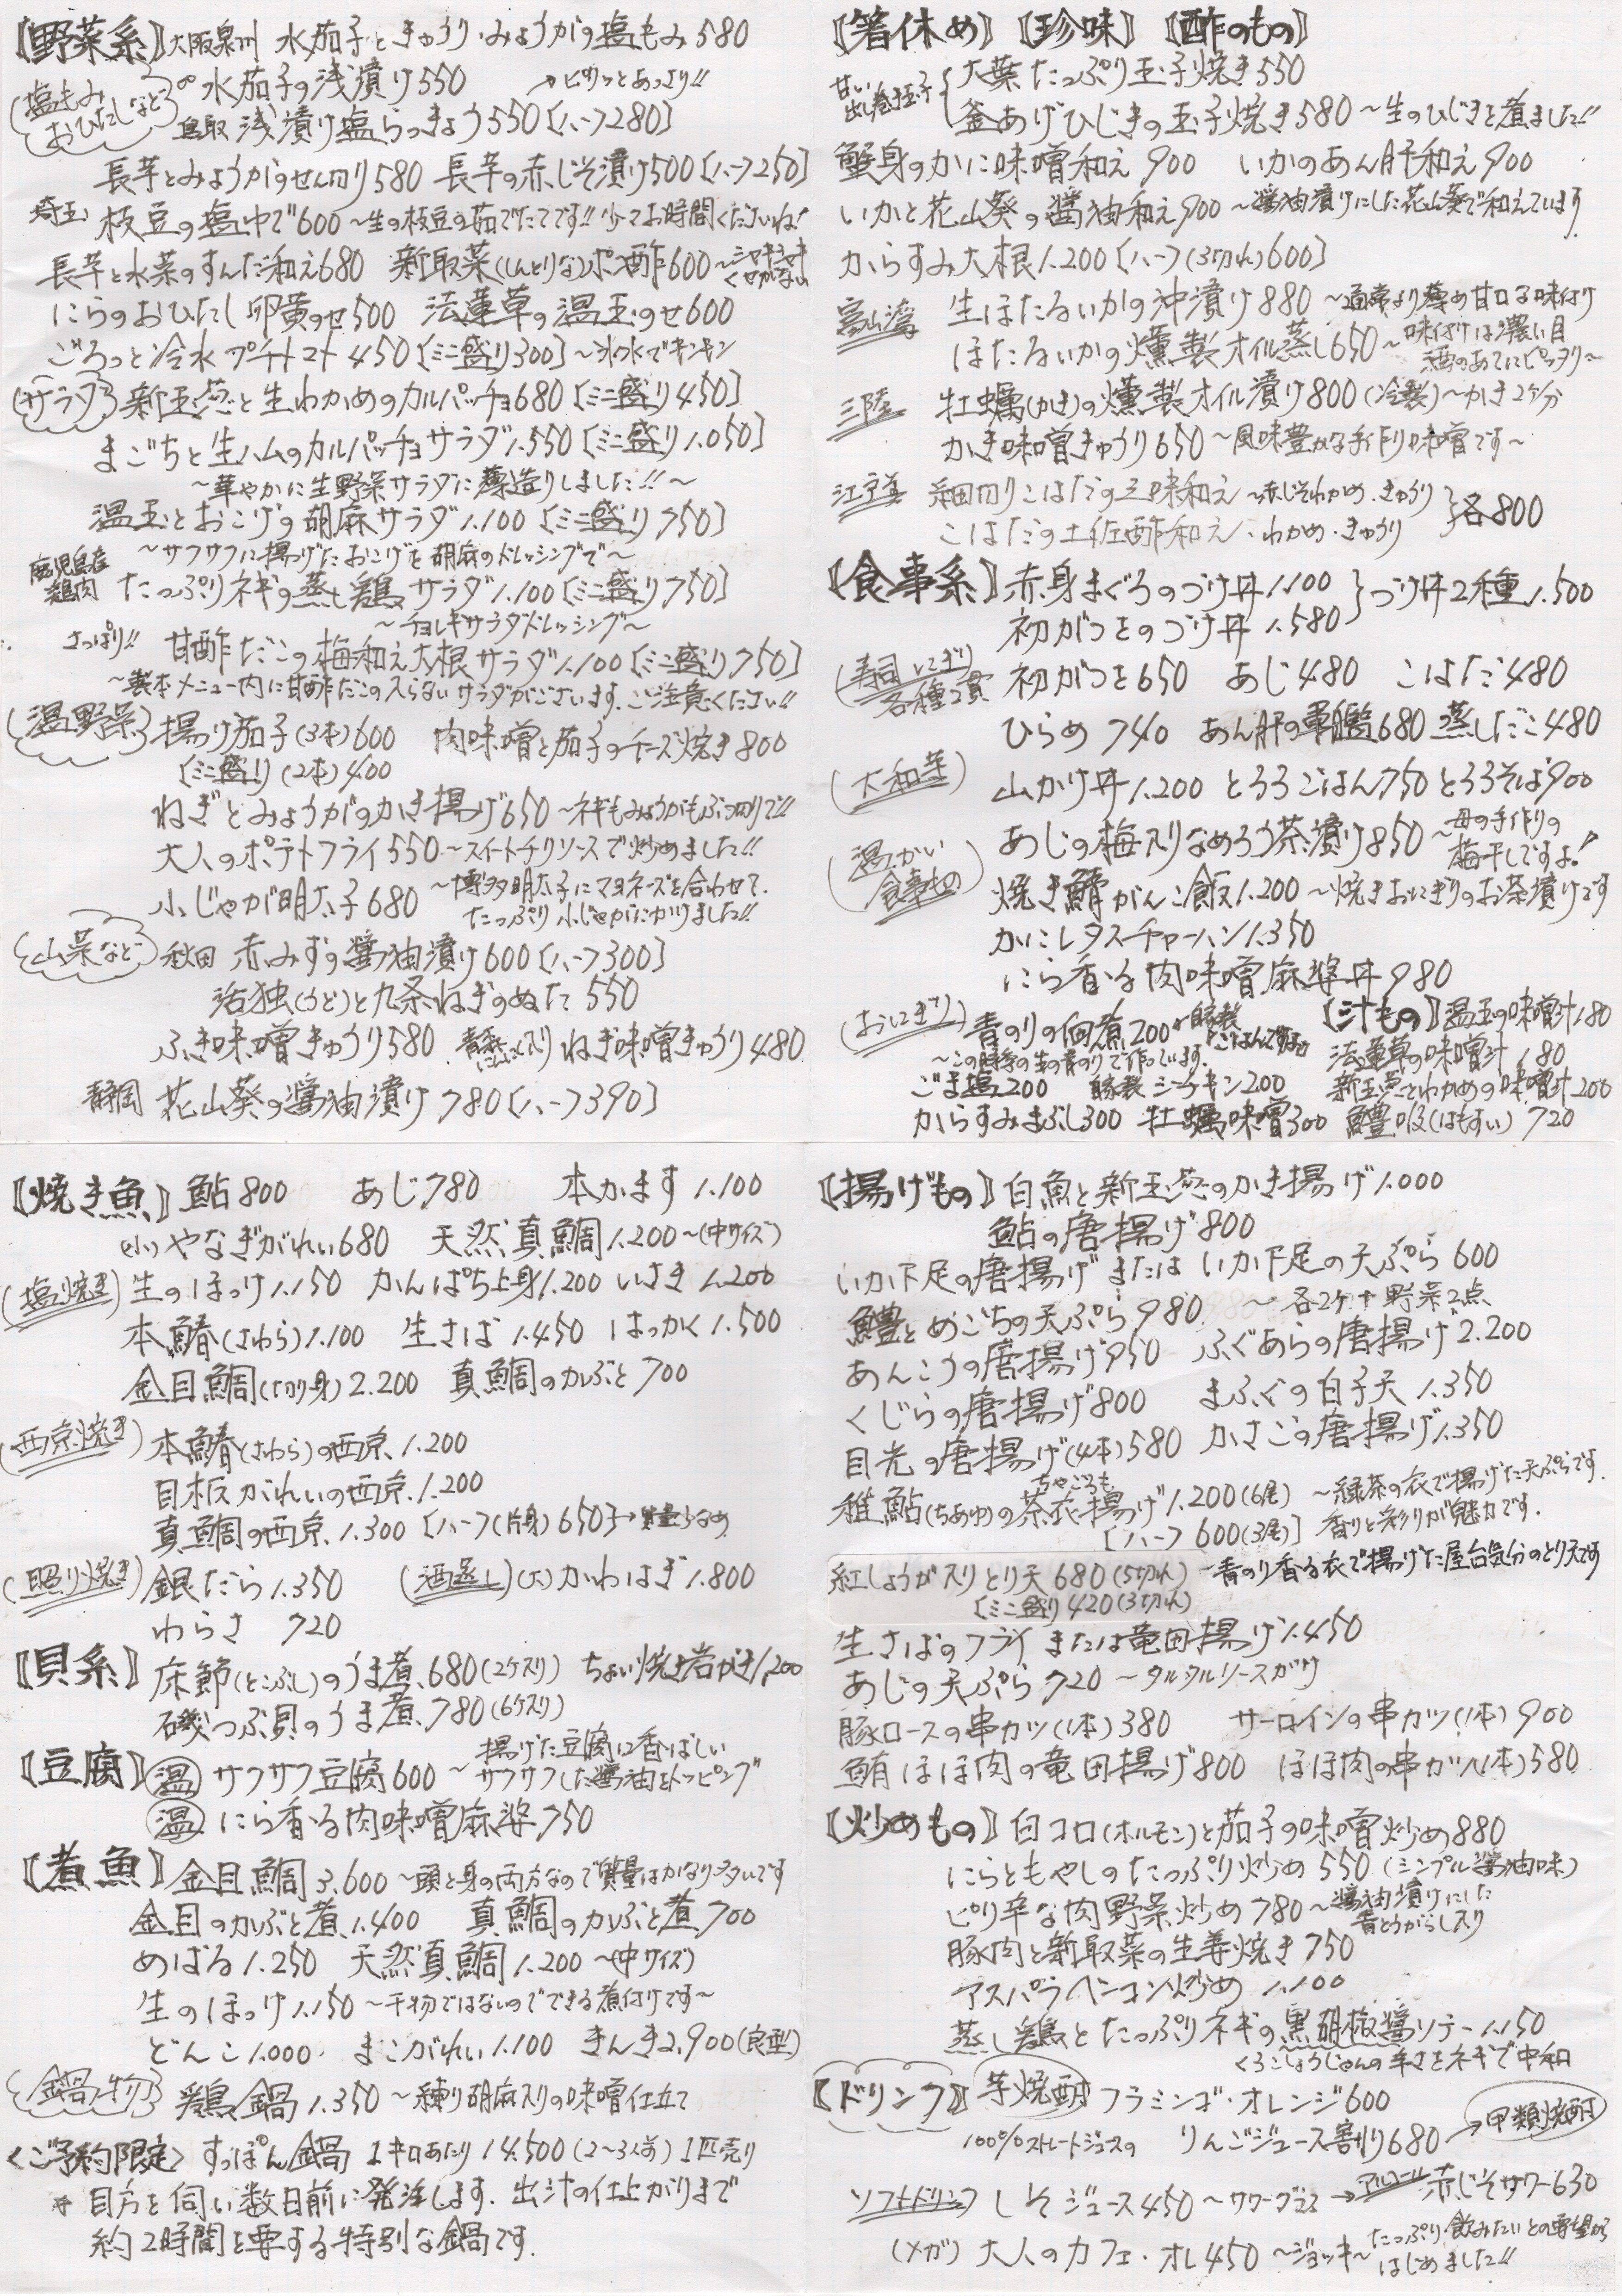 【野菜系】大阪泉州 水茄子ときゅうり・みょうがの塩もみ580
(塩もみ おひたしなど) 〃 水茄子の浅漬け550 →ピリッとあっさり!!
鳥取 浅漬け塩らっきょう550〔ハーフ280〕
長芋とみょうがのせん切り580 長芋の赤じそ漬け500〔ハーフ250〕
埼玉 枝豆の塩ゆで600〜生の枝豆の茹でたてです!! 少々お時間くださいね!
長芋と水菜のずんだ和え680 新取菜(しんとりな)ポン酢600〜シャキシャキくせがない
にらのおひたし卵黄のせ500 法蓮草の温玉のせ600
ごろっと冷水プチトマト450〔ミニ盛り300〕〜氷水でキンキン
(サラダ) 新玉葱と生わかめのカルパッチョ680〔ミニ盛り450〕
まごちと生ハムのカルパッチョサラダ1.550〔ミニ盛り1.050〕
〜華やかに生野菜サラダに薄造りしました!!〜
温玉とおこげの胡麻サラダ1.100〔ミニ盛り750〕
〜サクサクに揚げたおこげを胡麻のドレッシングで〜
鹿児島産鶏肉 たっぷりネギの蒸し鶏サラダ1.100〔ミニ盛り750〕
〜チョレギサラダドレッシング〜
さっぱり!! 甘酢だこの梅和え大根サラダ1.100〔ミニ盛り750〕
〜製本メニュー内に甘酢だこの入らないサラダがございます。ご注意ください!!
(温野菜) 揚げ茄子(3本)600 肉味噌と茄子のチーズ焼き800
〔ミニ盛り(2本)400
ねぎとみょうがのかき揚げ650〜ネギもみょうがもぶつ切りで!!
大人のポテトフライ550〜スイートチリソースで炒めました!!
小じゃが明太子680 〜博多明太子にマヨネーズを合わせて、
たっぷり小じゃがにかけました!!
(山菜など) 秋田 赤みずの醤油漬け600〔ハーフ300〕
活独(うど)と九条ねぎのぬた550
ふき味噌きゅうり580 青森にんにく入りねぎ味噌きゅうり480
静岡 花山葵の醤油漬け780〔ハーフ390〕
【箸休め】【珍味】【酢のもの】
甘い出し巻き玉子 大葉たっぷり玉子焼き550
釜あげひじきの玉子焼き580〜生のひじきを煮ました!!
蟹身のかに味噌和え900 いかのあん肝和え900
いかと花山葵の醤油和え900〜醤油漬けにした花山葵で和えています
からすみ大根1.200〔ハーフ(3切れ)600〕
富山湾 生ほたるいかの沖漬け880〜通常より薄め甘口な味付け
ほたるいかの燻製オイル蒸し650〜味付けは濃い目
酒のあてにピッタリ〜
三陸 牡蠣(かき)の燻製オイル漬け800(冷製)〜かき2ケ分
かき味噌きゅうり650〜風味豊かな手作り味噌です〜
江戸前 細切りこはだの三味和え〜赤じそわかめ・きゅうり
こはだの土佐酢和え・わかめ・きゅうり 各800
【食事系】赤身まぐろのづけ丼1.100
初がつをのづけ丼1.580 づけ丼2種1.500
(寿司にぎり 各種2貫) 初がつを650 あじ480 こはだ480
ひらめ740 あん肝の軍艦680 蒸しだこ480
(大和芋) 山かけ丼1.200 とろろごはん750 とろろそば900
(温かい食事もの) あじの梅入りなめろう茶漬け850〜母の手作りの梅干しですよ!
焼き鯖がんこ飯1.200〜焼きおにぎりのお茶漬けです
かにレタスチャーハン1.350
にら香る肉味噌麻婆丼980
(おにぎり) 青のりの佃煮200 豚製ごはんですよ
〜この時季の生の青のりで作っています。
ごま塩200 豚製シーチキン200
からすみまぶし300 牡蠣味噌300
【汁もの】温玉の味噌汁180
法蓮草の味噌汁180
新玉葱とわかめの味噌汁200
鱧吸(はもすい)720
【焼き魚】鮎800 あじ780 本かます1.100
(小)やなぎがれい680 天然真鯛1.200〜(中サイズ)
(塩焼き) 生のほっけ1.150 かんぱち上身1.200 いさき1.200
本鰆(さわら)1.100 生さば1.450 はっかく1.500
金目鯛(切り身)2.200 真鯛のかぶと700
(西京焼き) 本鰆(さわら)の西京1.200
目板がれいの西京1.200
真鯛の西京1.300〔ハーフ(片身)650〕→質量少なめ
(照り焼き) 銀だら1.350 (酒蒸し)(大)かわはぎ1.800
わらさ 720
【貝系】床節(とこぶし)のうま煮680(2ケ入り) ちょい焼き岩がき1,200
磯つぶ貝のうま煮780(6ケ入り)
【豆腐】温 サクサク豆腐600〜揚げた豆腐に香ばしい
サクサクした醤油をトッピング
温 にら香る肉味噌麻婆750
【煮魚】金目鯛3.600〜頭と身の両方なので質量はかなり多いです
金目のかぶと煮1.400 真鯛のかぶと煮700
めばる1.250 天然真鯛1.200〜(中サイズ)
生のほっけ1.150〜干物ではないのでできる煮付けです〜
どんこ1.000 まこがれい1.100 きんき2,900(良型)
(鍋物) 鶏鍋1.350〜練り胡麻入りの味噌仕立て
〈ご予約限定〉すっぽん鍋 1キロあたり14.500(2〜3人前)1匹売り
＊目方を伺い数日前に発注します。出汁の仕上がりまで
約2時間を要する特別な鍋です。
【揚げもの】白魚と新玉葱のかき揚げ1.000
鮎の唐揚げ800
いか下足の唐揚げまたはいか下足の天ぷら600
鱧とめごちの天ぷら980 〜各2ケ+野菜2点
あんこうの唐揚げ950 ふぐあらの唐揚げ2.200
くじらの唐揚げ800 まふぐの白子天1.350
目光の唐揚げ(4本)580 かさごの唐揚げ1.350
稚鮎(ちあゆ)の茶衣(ちゃごろも)揚げ1.200(6尾) 〜緑茶の衣で揚げた天ぷらです。
〔ハーフ600(3尾)〕 香りと彩りが魅力です。
紅しょうが入りとり天680(5切れ)〜青のり香る衣で揚げた屋台気分のとり天です
〔ミニ盛り420(3切れ)
生さばのフライまたは竜田揚げ1.450
あじの天ぷら720〜タルタルソースがけ
豚ロースの串カツ(1本)380 サーロインの串カツ(1本)900
鮪ほほ肉の竜田揚げ800 ほほ肉の串カツ(1本)580
【炒めもの】白コロ(ホルモン)と茄子の味噌炒め880
にらともやしのたっぷり炒め550(シンプル醤油味)
ピリ辛な肉野菜炒め780〜醤油漬けにした
青とうがらし入り
豚肉と新取菜の生姜焼き750
アスパラベーコン炒め 1.100
蒸し鶏とたっぷりネギの黒胡椒醤ソテー1.150
くろこしょうじゃんの辛さをネギで中和
【ドリンク】芋焼酎 フラミンゴ・オレンジ600
100%ストレートジュースの りんごジュース割り680→甲類焼酎
ソフトドリンク しそジュース450〜サワーグラス→アルコール 赤じそサワー630
(メガ)大人のカフェ・オレ450〜ジョッキ〜たっぷり飲みたいとの要望から
はじめました!!